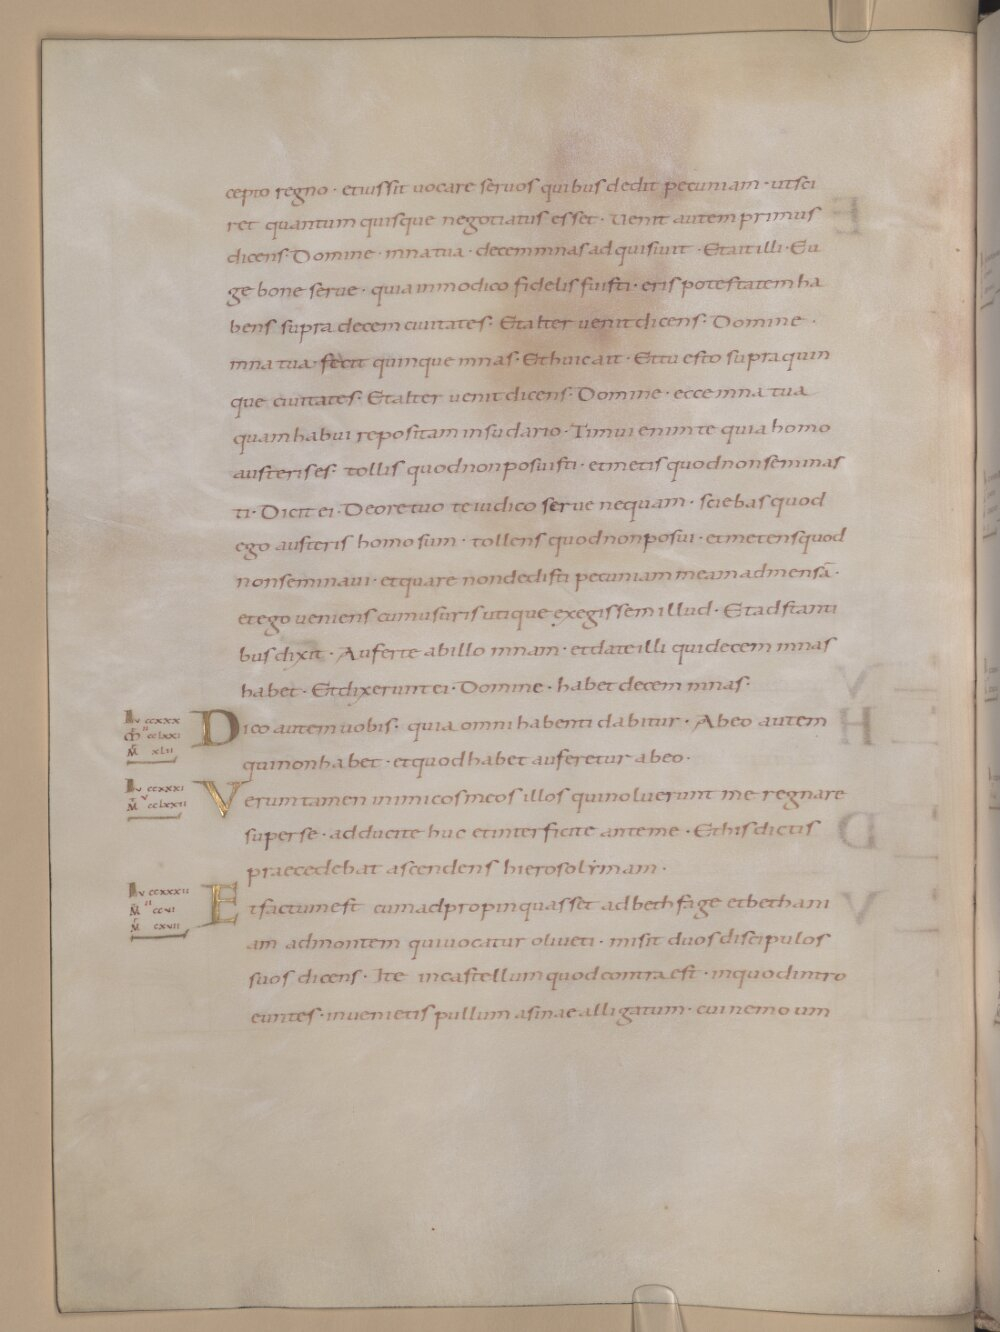 cepto regno · et iussit uocare seruos quibus dedit pecuniam · ut sci
ret quantum quisque negotiatus esset · Uenit autem primus
dicens · Domine · mna tua · decem mnas adquisiuit · Et ait illi · Eu
ge bone serue · quia in modico fidelis fuisti · eris potestatem ha
bens supra decem ciuitates · Et alter uenit dicens · Domine ·
mna tua · fecit quinque mnas · Et huic ait · Et tu esto supra quin
que ciuitates · Et alter uenit dicens · Domine · ecce mna tua
quam habui repositam in sudario · Timui enim te quia homo
austeris es · tollis quod non posuisti · et metis quod non seminas
ti · Dicit ei · De ore tuo te iudico serue nequam · sciebas quod
ego austeris homo sum · tollens quod non posui · et metens quod
non seminaui · et quare non dedisti pecuniam meam ad mensā ·
et ego ueniens cum usuris utique exegissem illud · Et adstanti
bus dixit · Auferte ab illo mnam · et date illi qui decem mnas
habet · Et dixerunt ei · Domine · habet decem mnas ·
Lv ccxxx
m̄ cclxxi
M̄ xlii
Dico autem uobis · quia omni habenti dabitur · Ab eo autem
qui non habet · et quod habet auferetur ab eo ·
Lv ccxxxi
M̄ cclxxii
Verum tamen inimicos meos illos qui noluerunt me regnare
super se · adducite huc et interficite ante me · Et his dictis
praecedebat ascendens hierosolẏmam ·
Lv ccxxxii
M̄ ccvi
M̄ cxvii
Et factum est cum adpropinquasset ad bethfage et bethani
am ad montem qui uocatur oliueti · misit duos discipulos
suos dicens · Ite in castellum quod contra est · in quod intro
euntes · inuenietis pullum asinae alligatum · cui nemo um